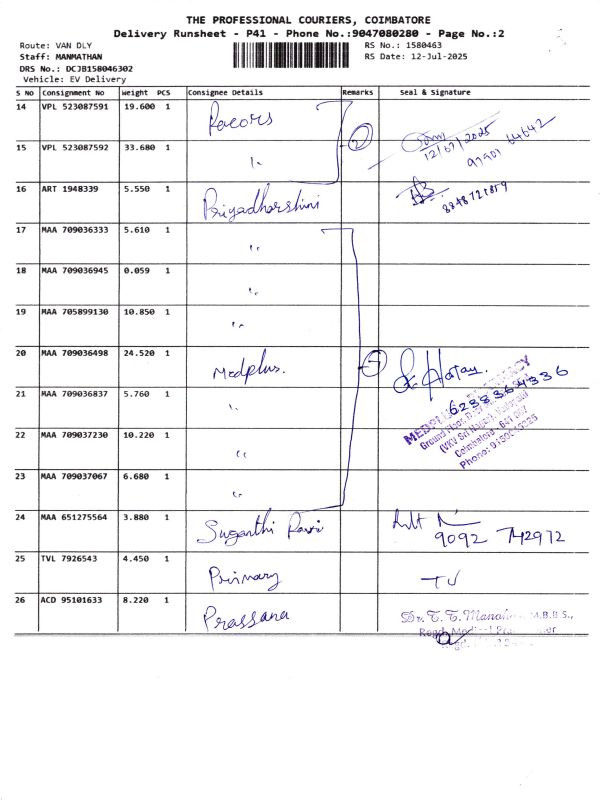 THE PROFESSIONAL COURIERS, COIMBATORE
Delivery Runsheet - P41 - Phone No.:9047080280 - Page No.:2
Route: VAN DLY
RS No.: 1580463
Staff: MANMATHAN
RS Date: 12-Jul-2025
DRS No.: DCJB158046302
Vehicle: EV Delivery
S No Consignment No Weight PCS Consignee Details Remarks Seal & Signature
14 VPL 523087591 19.600 1
15 VPL 523087592 33.680 1 2 12/07/2025
16 ART 1948339 5.550 1 Priyadharshini
17 MAA 709036333 5.610 1
18 MAA 709036945 0.059 1
19 MAA 705899130 10.850 1
20 MAA 709036498 24.520 1 Medplus.
21 MAA 709036837 5.760 1
22 MAA 709037230 10.220 1
23 MAA 709037067 6.680 1
24 MAA 651275564 3.880 1 Suganthi Ravi 9092 742972
25 TVL 7926543 4.450 1 Primary
26 ACD 95101633 8.220 1 Prassana Dr. T. T. M.B.B.S.,